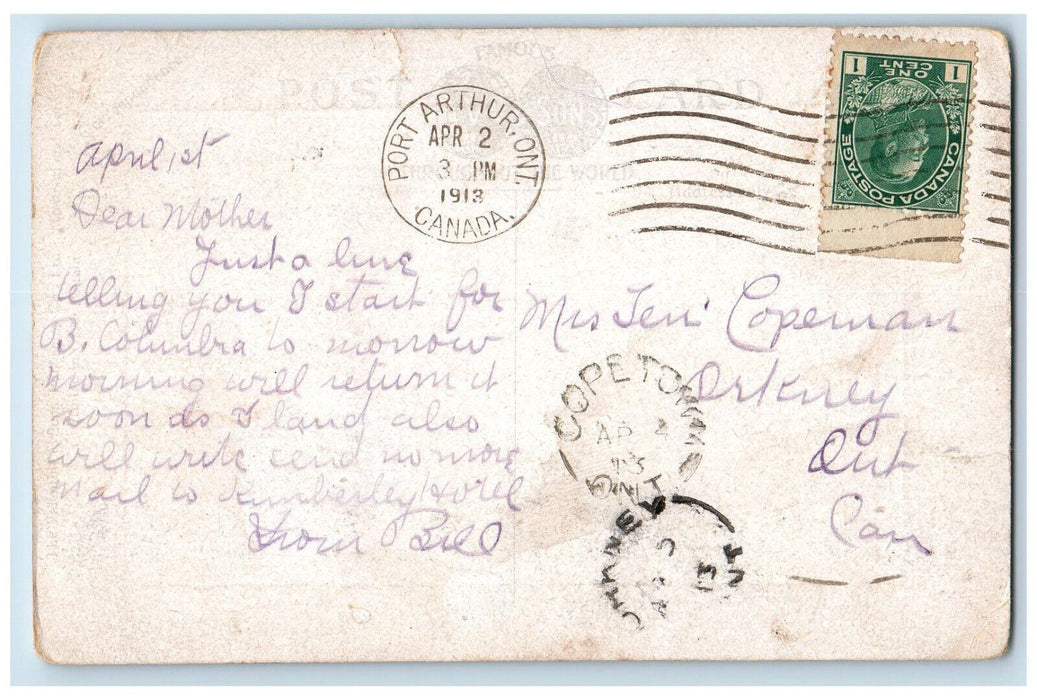 FAMOUS
POST CARD
SONS
THROUGHOUT THE WORLD
PORT ARTHUR, ONT.
APR 2
3 PM
1913
CANADA.
1 ONE CENT 1
CANADA POSTAGE
April 1st
Dear Mother
Just a line
telling you I start for
B. Columbia to morrow
morning will return it
soon as I land also
will write send no more
mail to Kimberley Hotel
From Bill
Mrs Copeman
Orkney
Ont
Can
COPETOWN
AP 2
13
ONT
ORKNEY
13
ONT